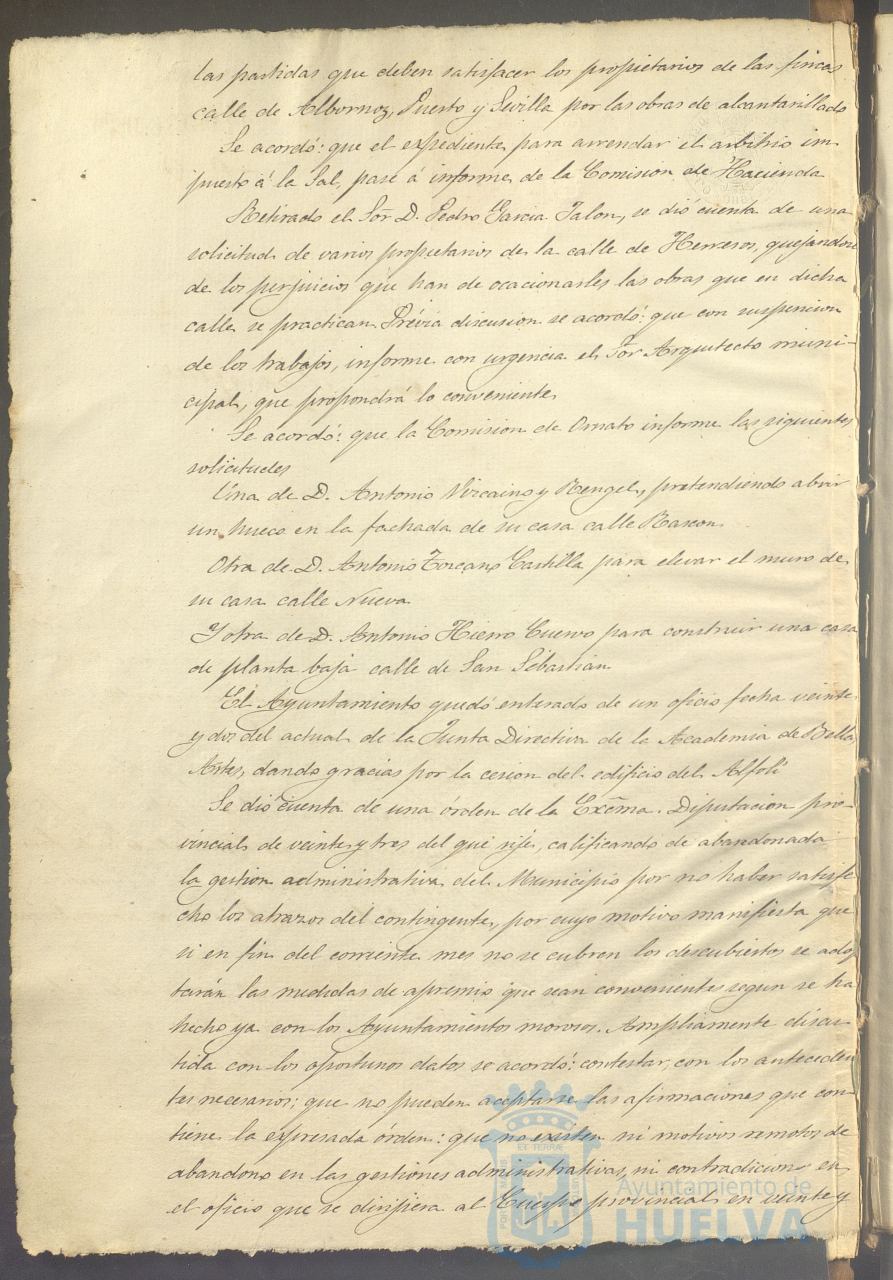 las partidas que deben satisfacer los propietarios de las fincas
calle de Albornoz, Puerto y Sevilla por las obras de alcantarillado
Se acordó: que el expediente para arrendar el arbitrio im-
puesto á la Sal, pase á informe de la Comision de Hacienda
Retirado el Sor D. Pedro Garcia Jalon, se dió cuenta de una
solicitud de varios propietarios de la calle de Herreros, quejandose
de los perjuicios que han de ocacionarles las obras que en dicha
calle se practican. Prévia discusion se acordó: que con suspencion
de los trabajos, informe con urgencia el Sor Arquitecto muni-
cipal, que propondrá lo conveniente
Se acordó: que la Comision de Ornato informe las siguientes
solicitudes
Una de D. Antonio Vizcaino y Rengel, pretendiendo abrir
un hueco en la fachada de su casa calle Rascon
Otra de D. Antonio Toscano Castilla para elevar el muro de
su casa calle Nueva
Y otra de D. Antonio Hierro Cuervo para construir una casa
de planta baja calle de San Sebastian
El Ayuntamiento quedó enterado de un oficio fecha veinte
y dos del actual de la Junta Directiva de la Academia de Bellas
Artes, dando gracias por la cesion del edificio del Alfolí
Se dió cuenta de una órden de la Excma. Diputacion pro-
vincial de veinte y tres del que rije, calificando de abandonada
la gestion administrativa del Municipio por no haber satisfe
cho los atrazos del contingente, por cuyo motivo manifiesta que
si en fin del corriente mes no se cubren los descubiertos se adop
tarán las medidas de apremio que sean convenientes segun se ha
hecho ya con los Ayuntamientos morosos. Ampliamente discu-
tida con los oportunos datos se acordó: contestar, con los anteceden
tes necesarios; que no pueden aceptarse las afirmaciones que con-
tiene la expresada órden: que no existen ni motivos remotos de
abandono en las gestiones administrativas, ni contradicion en
el oficio que se dirijiera al Cuerpo provincial en veinte y
Ayuntamiento de
HUELVA